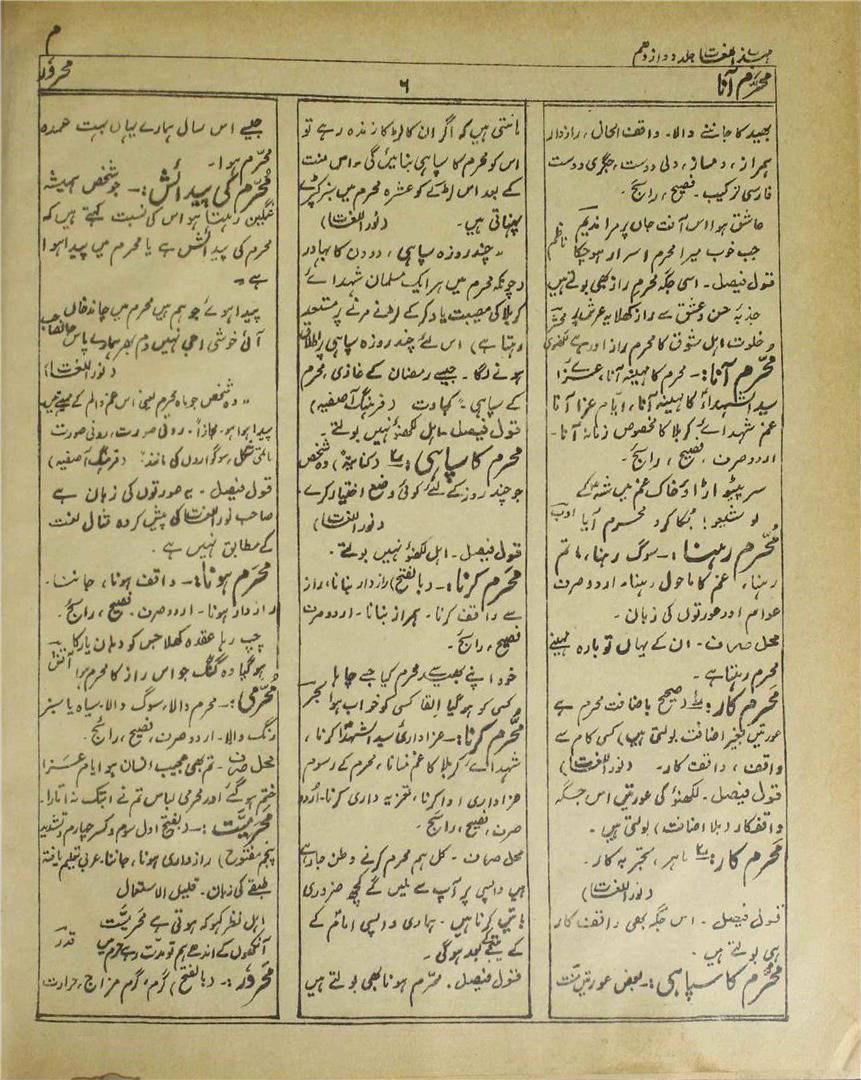 مہذب اللغات جلد دوازدہم
م
محرّم آنا
۶
محرور
بھید کا جاننے والا۔ واقف الحال، رازدار
ہمراز، دمساز، دلی دوست، جگری دوست
فارسی ترکیب۔ فصیح، رائج۔
عاشق ہوا اس آفت جاں پر مرا ندیم
جب خوب میرا محرم اسرار ہو چکا ناظم
قول فیصل۔ اسی جگہ محرمِ راز بھی بولتے ہیں
جذبۂ حسن و عشق سے راز کھلا یہ عرش پر محشر
خلوت اہل شوق کا محرم راز اور ہے لکھنوی
محرّم آنا:۔ محرم کا مہینہ آنا، عزائے
سید الشہداءؑ کا مہینہ آنا، ایّام عزا آنا
غم شہدائے کربلا کا مخصوص زمانہ آنا۔
اردو صرف، فصیح، رائج۔
سر پیٹو اڑاؤ خاک غم میں شہؑ کے
لو شیعو! بکا کرو محرم آیا ادب
مُحرّم رہنا:۔ سوگ رہنا، ماتم
رہنا، غم کا ماحول رہنا۔ اردو صرف
عوام اور عورتوں کی زبان۔
محل صرف۔ ان کے یہاں تو بارہ مہینے
محرم رہتا ہے۔
محرم کار:۔ صحیح باضافت محرم ہے
عورتیں بغیر اضافت بولتی ہیں) کسی کام سے
واقف، واقف کار۔ (نور اللغات)
قول فیصل۔ لکھنؤ کی عورتیں اس جگہ
واقفکار (بلا اضافت) بولتی ہیں۔
محرم کار:۔ ماہر، تجربہ کار۔
(نور اللغات)
قول فیصل۔ اس جگہ بھی واقف کار
ہی بولتے ہیں۔
محرّم کا سپاہی:۔ بعض عورتیں منت
مانتی ہیں کہ اگر ان کا لڑکا زندہ رہے تو
اس کو محرم کا سپاہی بنائیں گی۔ اس منت
کے بعد اس لڑکے کو عشرہ محرم میں سبز کپڑے
پہناتی ہیں۔ (نور اللغات)
"چند روزہ سپاہی، دو دن کا بہادر
(چونکہ محرم میں ہر ایک مسلمان شہدائے
کربلا کی مصیبت یاد کر کے لڑنے مرنے پر مستعد
رہتا ہے) اس لئے چند روزہ سپاہی پر اطلاق
ہونے لگا۔ جیسے رمضان کے غازی، محرم
کے سپاہی" کہاوت (فرہنگ آصفیہ)
قول فیصل۔ اہل لکھنؤ نہیں بولتے۔
محرم کا سپاہی:۔ (کنایۃً) وہ شخص
جو چند روز کے لئے کوئی وضع اختیار کرے۔
(نور اللغات)
قول فیصل۔ اہل لکھنؤ نہیں بولتے۔
محرم کرنا:۔ (بالفتح) رازدار بنانا، راز
سے واقف کرنا۔ ہمراز بنانا۔ اردو صرف
فصیح، رائج۔
خود اپنے بھید سے محرم کیا جسے چاہا
کسی کو ہو گیا القا کسی کو خواب ہوا
محرّم کرنا:۔ عزاداریٔ سید الشہداؑ کرنا،
شہدائے کربلا کا غم منانا، محرم کے رسوم
عزاداری ادا کرنا، تعزیہ داری کرنا۔ اردو
صرف، فصیح، رائج۔
محل صرف۔ کل ہم محرم کرنے وطن جا رہے
ہیں واپسی پر آپ سے ملیں گے کچھ ضروری
باتیں کرنا ہیں۔ ہماری واپسی امامؑ کے
کے تیجے کے بعد ہو گی۔
قول فیصل۔ محرّم ہونا بھی بولتے ہیں
جیسے اس سال ہمارے یہاں بہت عمدہ
محرّم ہوا۔
مُحرّم کی پیدائش:۔ جو شخص ہمیشہ
غمگین رہتا ہو اس کی نسبت کہتے ہیں کہ
محرم کی پیدائش ہے یا محرم میں پیدا ہوا
ہے۔
پیدا ہوئے جو ہم ہیں محرم میں چاند خاں
آئی خوشی اجی نہیں دم بھر ہمارے پاس
(نور اللغات)
"وہ شخص جو ماہ محرم یعنی اس غم و الم کے مہینے میں
پیدا ہوا ہو۔ مجازاً۔ رونی صورت، رونی صورت
ماتمی شکل، سوگواروں کی مانند" (فرہنگ آصفیہ)
قول فیصل۔ یہ عورتوں کی زبان ہے
صاحب نور اللغات کی پیش کردہ مثال لغت
کے مطابق نہیں ہے۔
محرم ہونا:۔ واقف ہونا، جاننا۔
رازدار ہونا۔ اردو صرف۔ فصیح، رائج۔
چپ رہا عقدہ کھلا جس کو دہان یار کا
ہو گیا وہ گنگ جو اس راز کا محرم ہوا آتش
مُحرّمی:۔ محرم والا، سوگ والا، سیاہ یا سبز
رنگ والا۔ اردو صرف، فصیح، رائج۔
محل صرف۔ تم بھی عجیب انسان ہو ایام عزا
ختم ہو گئے اور محرمی لباس تم نے ابتک نہ اتارا۔
محرمیّت:۔ (بفتح اول سوم و کسر چہارم و تشدید
پنجم مفتوح) رازداری ہونا، جاننا۔ عربی تعلیم یافتہ
طبقے کی زبان۔ قلیل الاستعمال
اہل نظر کو کہ ہوتی ہے محرمیّت
آنکھوں کے اندھے ہم تو مدت رہے حرم میں قدر
محرور:۔ (بالفتح) گرم، گرم مزاج، حرارت